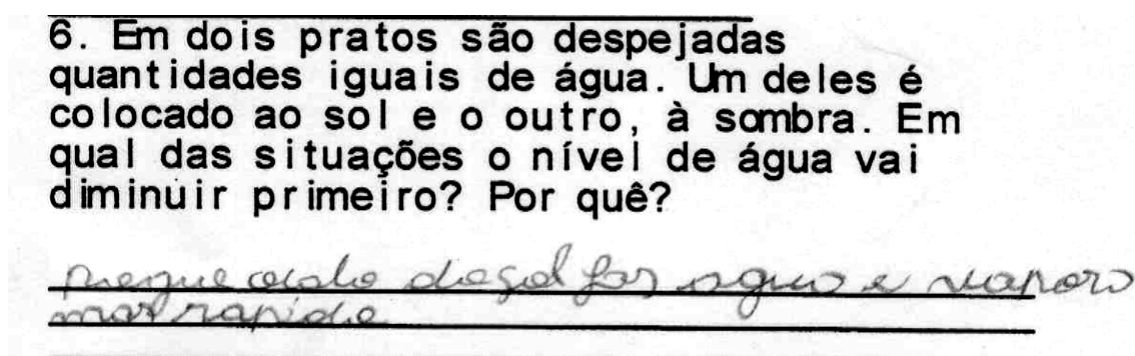 6. Em dois pratos são despejadas
quantidades iguais de água. Um deles é
colocado ao sol e o outro, à sombra. Em
qual das situações o nível de água vai
diminuir primeiro? Por quê?
porque calo do sol faz agua e vaporo
mas rapido